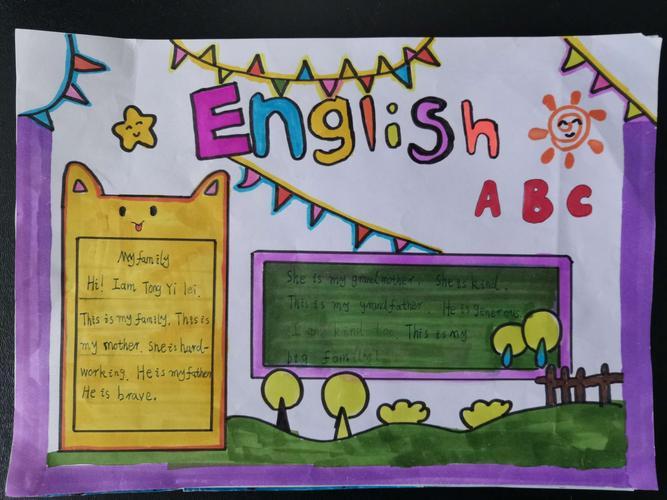 English
ABC
My family
Hi! Iam Tong Yi lei.
This is my family. This is
my mother. She is hard-
working. He is my father
He is brave.
She is my grandmother. She is kind.
This is my grandfather. He is generous.
I am kind too. This is my
big family!